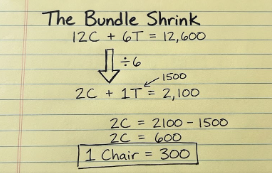 The Bundle Shrink
12C + 6T = 12,600
÷6
1500
2C + 1T = 2,100
2C = 2100 - 1500
2C = 600
1 Chair = 300